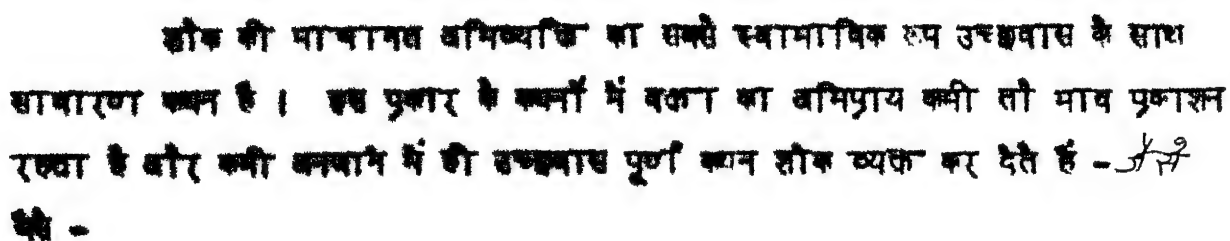 शोक की भाषागत अभिव्यक्ति का सबसे स्वाभाविक रूप उच्छ्वास के साथ
साधारण कथन है । इस प्रकार के कथनों में वक्ता का अभिप्राय कभी तो भाव प्रकाशन
रहता है और कभी अनजाने में ही उच्छ्वास पूर्ण कथन शोक व्यक्त कर देते हैं - जैसे
जैसे -